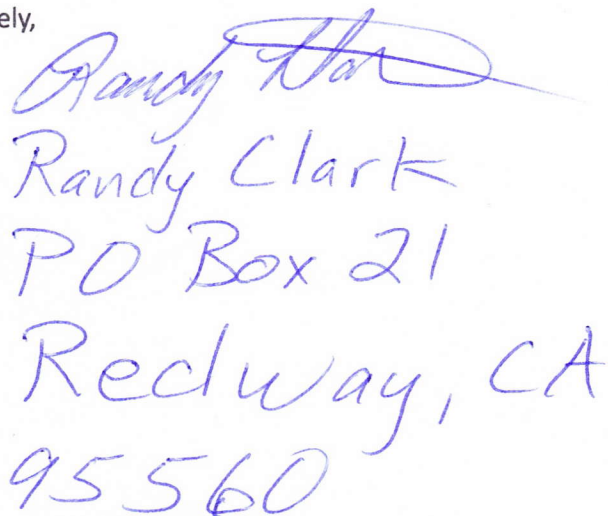 ely,
Randy
Randy Clark
PO Box 21
Redway, CA
95560